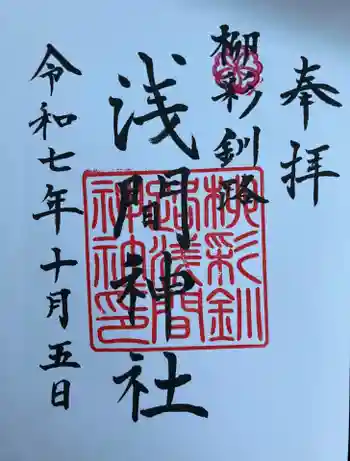 奉拝
柳彩釧路
浅間神社
令和七年十月五日
柳彩釧
路浅間
神社印